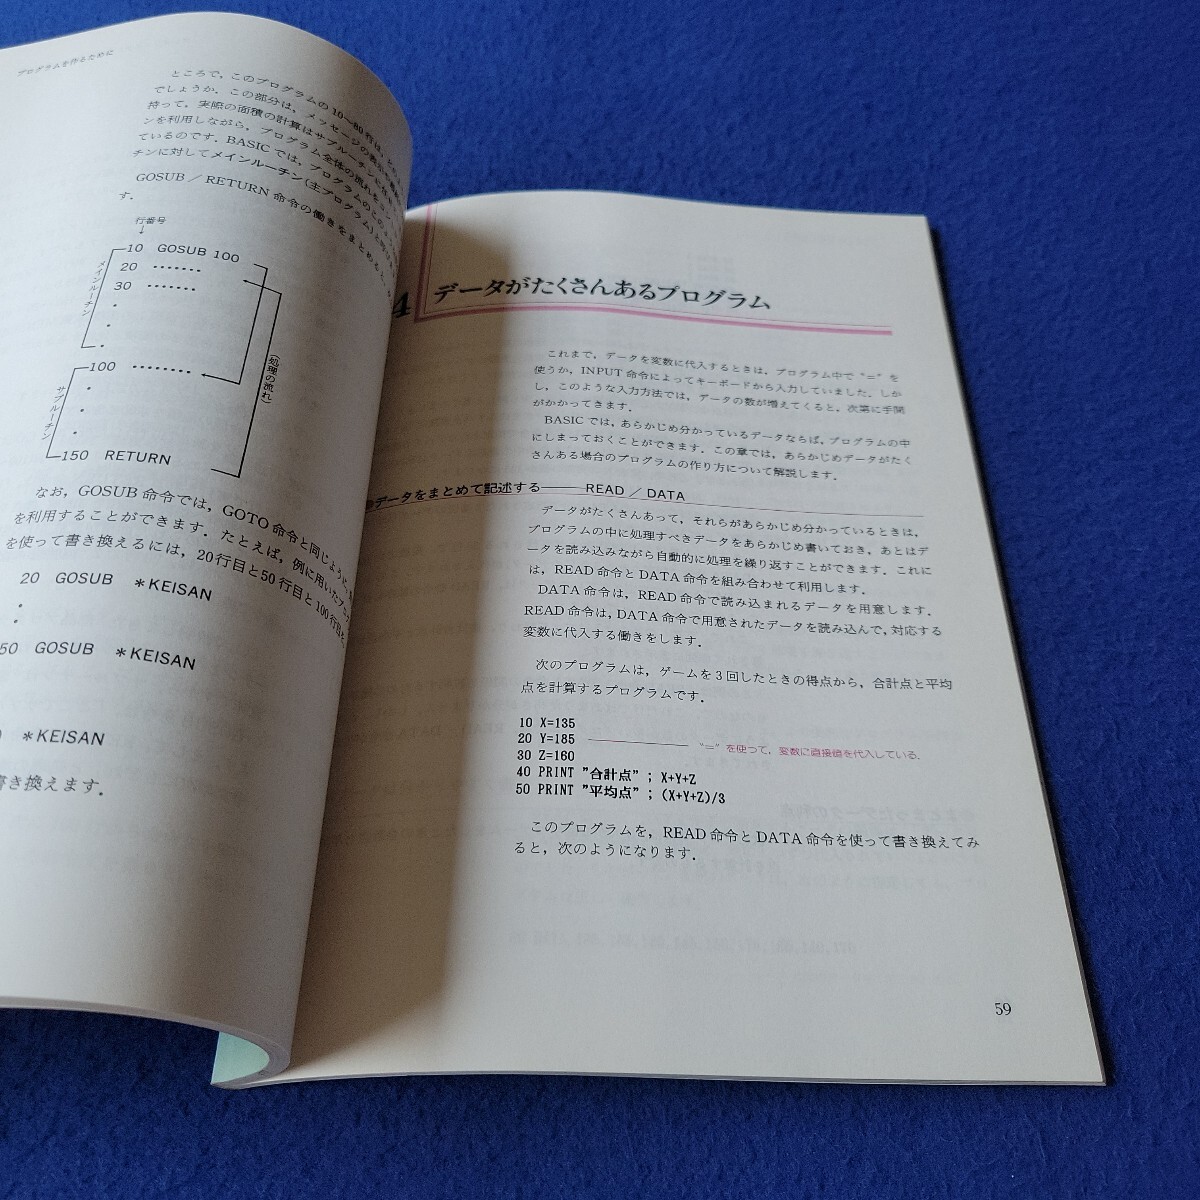 プログラムを作るために
ところで，このプログラムの10～80行は，
でしょうか．この部分は，メッセージの表示
持って，実際の面積の計算はサブルーチンに
ンを利用しながら，プログラム全体の流れを
ているのです．BASICでは，プログラムのこの
チンに対してメインルーチン(主プログラム)と
GOSUB／RETURN命令の働きをまとめると，
す．
行番号
↓
10 GOSUB 100
20 ・・・・・・・
30 ・・・・・・・
・
・
・
メインルーチン
100 ・・・・・・・・
・
・
・
サブルーチン
150 RETURN
(処理の流れ)
なお，GOSUB命令では，GOTO命令と同じように，
を利用することができます．たとえば，例に用いたプ
を使って書き換えるには，20行目と50行目と100行目を
20 GOSUB ＊KEISAN
・
・
50 GOSUB ＊KEISAN
＊KEISAN
書き換えます．
4 データがたくさんあるプログラム
これまで，データを変数に代入するときは，プログラム中で“＝”を
使うか，INPUT命令によってキーボードから入力していました．しか
し，このような入力方法では，データの数が増えてくると，次第に手間
がかかってきます．
BASICでは，あらかじめ分かっているデータならば，プログラムの中
にしまっておくことができます．この章では，あらかじめデータがたく
さんある場合のプログラムの作り方について解説します．
●データをまとめて記述する――READ／DATA
データがたくさんあって，それらがあらかじめ分かっているときは，
プログラムの中に処理すべきデータをあらかじめ書いておき，あとはデ
ータを読み込みながら自動的に処理を繰り返すことができます．これに
は，READ命令とDATA命令を組み合わせて利用します．
DATA命令は，READ命令で読み込まれるデータを用意します．
READ命令は，DATA命令で用意されたデータを読み込んで，対応する
変数に代入する働きをします．
次のプログラムは，ゲームを3回したときの得点から，合計点と平均
点を計算するプログラムです．
10 X=135
20 Y=185 “＝”を使って，変数に直接値を代入している．
30 Z=160
40 PRINT "合計点" ; X+Y+Z
50 PRINT "平均点" ; (X+Y+Z)/3
このプログラムを，READ命令とDATA命令を使って書き換えてみ
ると，次のようになります．
59